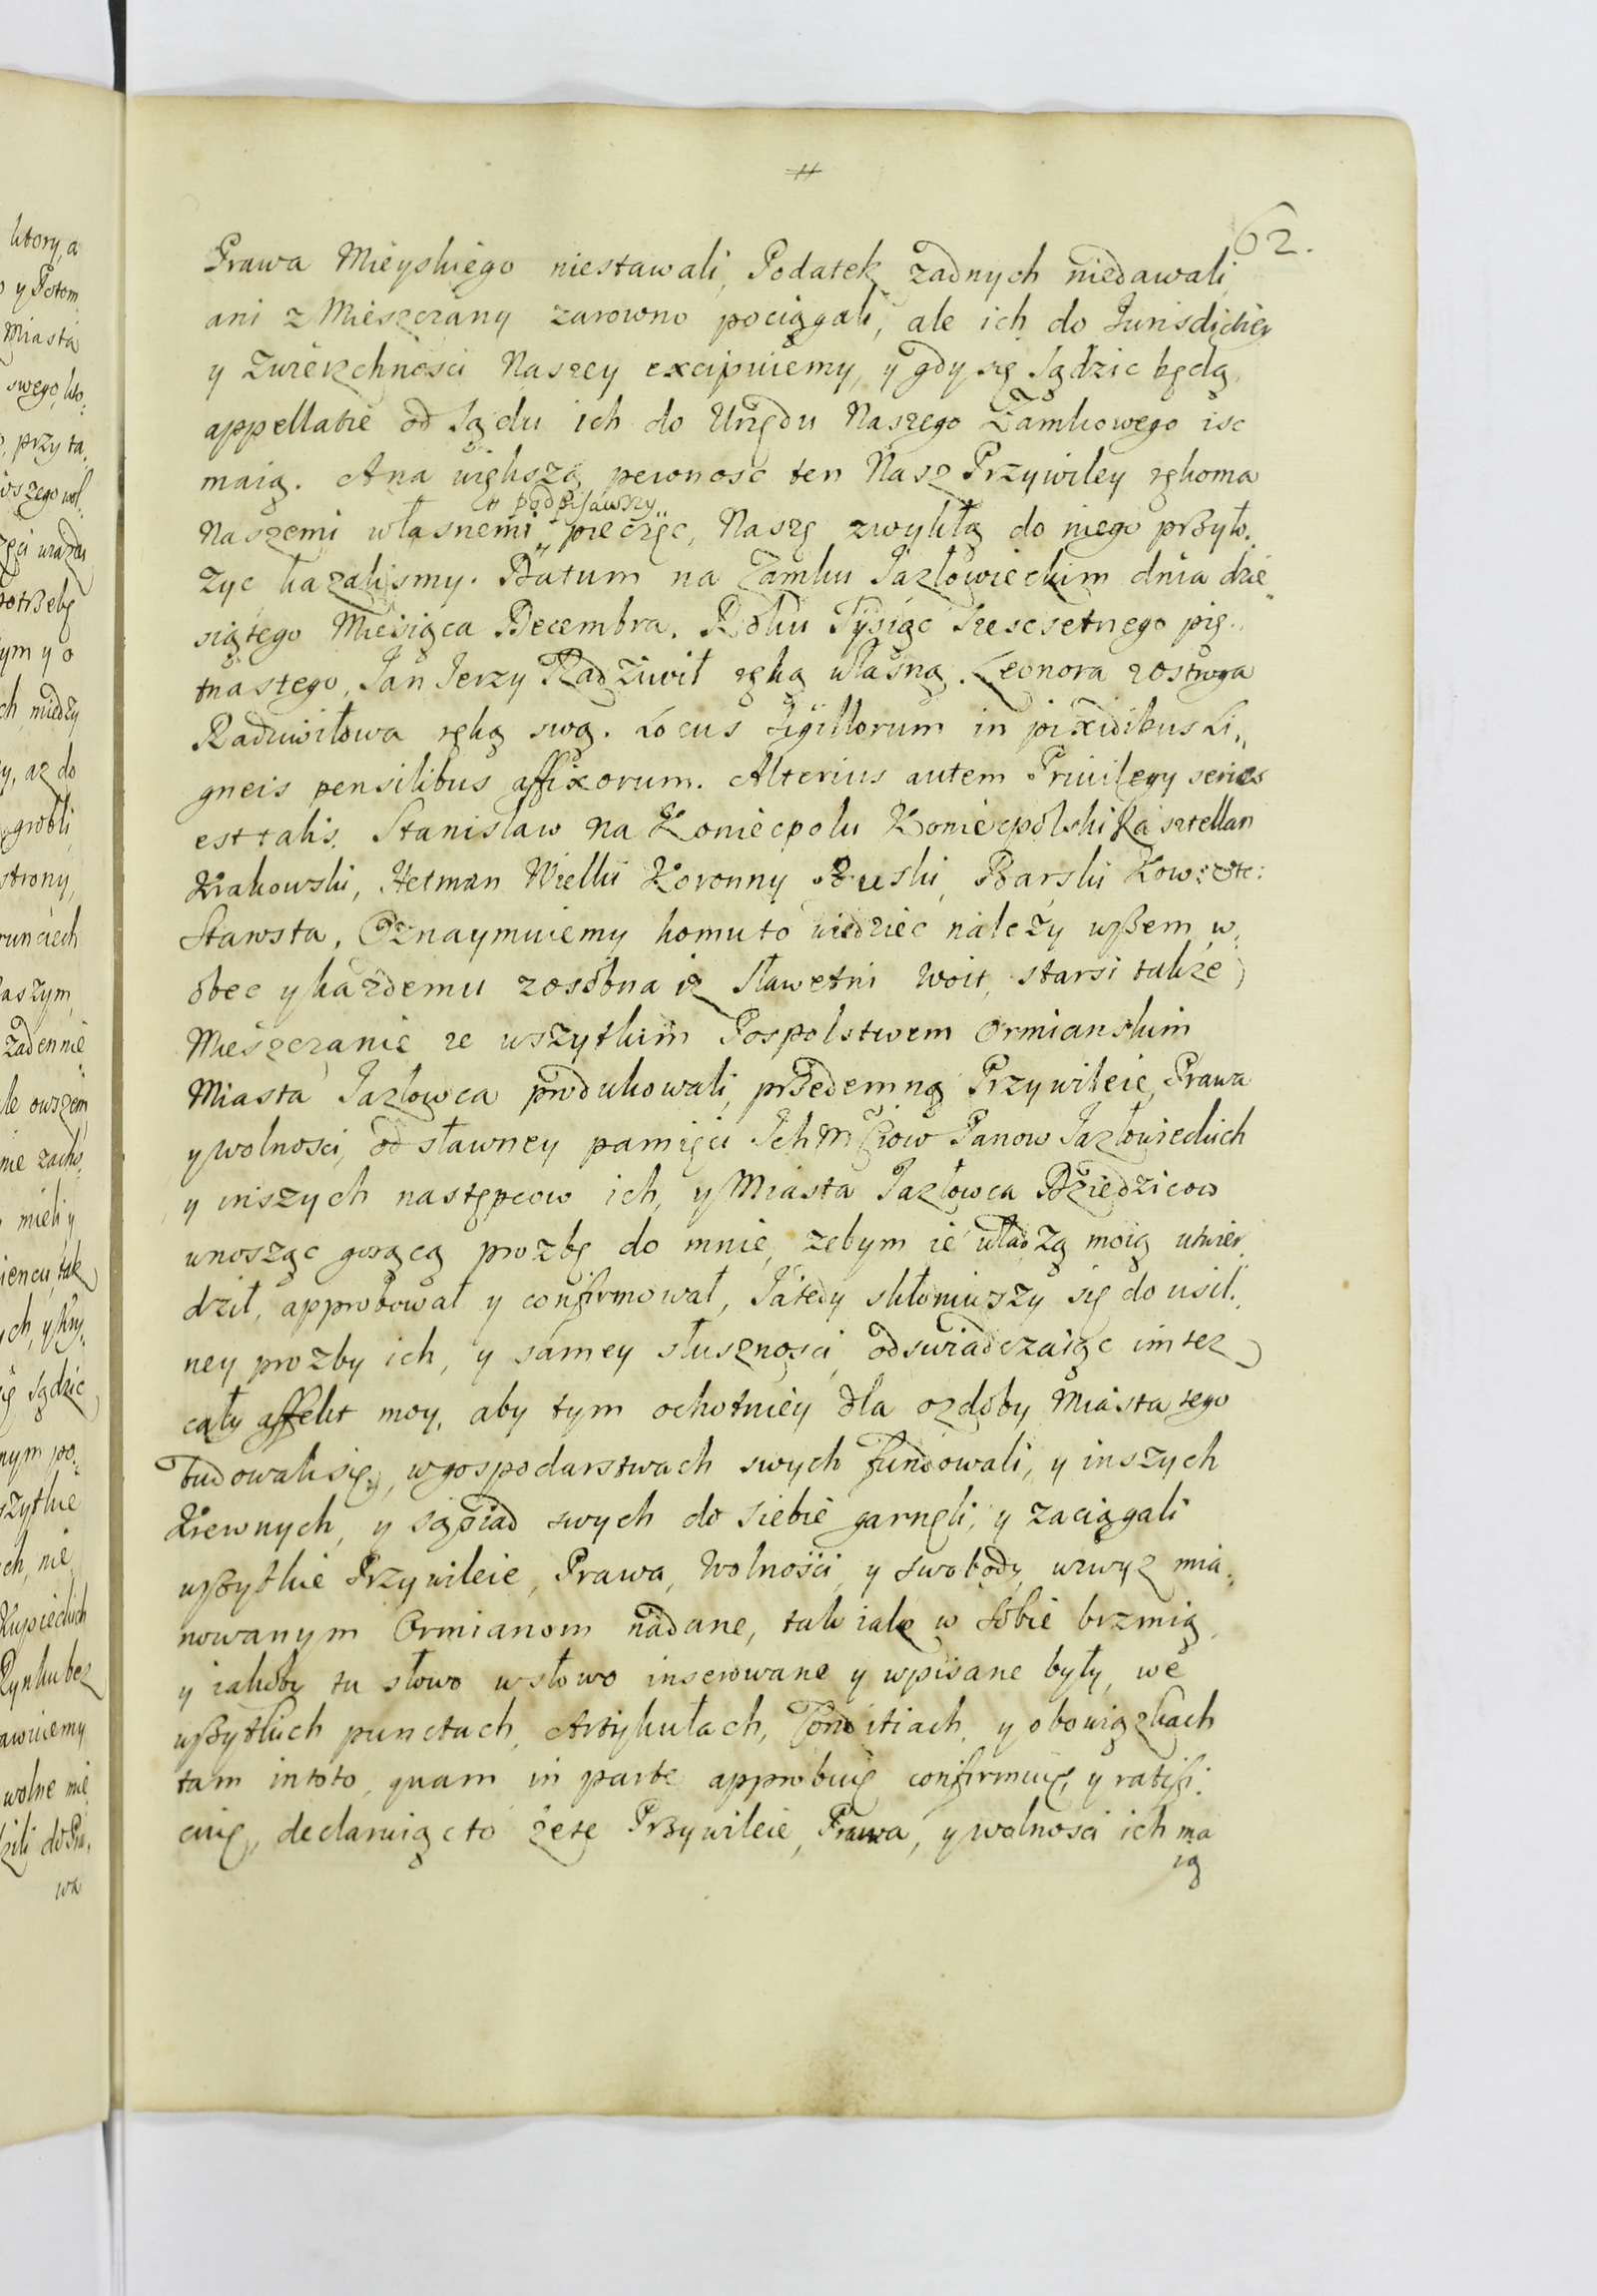 62.
Prawa Mieyskiego niestawali, Podatek zadnych niedawali,
ani z Mieszczany zarowno pociągali, ale ich do Iurisdictiey
y Zwierzchnosci Naszey excipuiemy, y gdy się Sądzic będą,
appellatie od Sądu ich do Urzędu Naszego Zamkowego isc
maią. A na większą pewnosc ten Nasz Przywiley rękoma
# podpisawszy
Naszemi własnemi pieczęc, Naszę zwykłą do niego przyło„
zyc kazalismy. Datum na Zamku Jazłowieckim dnia dzie„
siątego Miesiąca Decembra. Roku Tysiąc Szescsetnego pię„
tnastego, Jan Jerzy Radziwił ręką własną. Leonora zostroga
Radziwiłowa ręką swą. Locus Sigillorum in pixidibus Li„
gneis pensilibus affixorum. Alterius autem Privilegy series
est talis. Stanisław na Koniecpolu Koniecpolski Kasztellan
Krakowski, Hetman Wielki Koronny Ruski, Barski Kow: etc:
Starosta, Oznaymuiemy komu to wiedziec nalezy wszem w„
obec y kazdemu zosobna iz Sławetni Woit, starsi takze
Mieszczanie ze wszytkim Pospolstwem Ormianskim
Miasta Jazłowca produkowali, przedemną Przywileie, Prawa
y wolnosci, od sławney pamięci Ich Mściow Panow Jazłowieckich
y inszych następcow ich, y Miasta Jazłowca Dziedzicow
wnosząc gorącą prozbę do mnie, zebym ie władzą moią utwier„
dził, approbował y confirmował, Ja tedy skłoniwszy się do usil„
ney prozby ich, y samey słusznosci, odswiadczaiąc im tez
cały affekt moy, aby tym ochotniey dla ozdoby Miasta tego
budowali się, w gospodarstwach swych fundowali, y inszych
Krewnych, y sąsiad swych do siebie garnęli, y zaciągali
wszytkie Przywileie, Prawa, Wolnosci, y Swobody wzwyz mia„
nowanym Ormianom nadane, tak iako w Sobie brzmią,
y iakoby tu słowo w słowo inserowane y wpisane były, we
wszytkich punctach, Artykułach, Conditiach, y obowiązkach
tam in toto, quam in parte approbuię confirmuię, y ratifi„
cuię, declaruiąc to zete Przywileie, Prawa, y wolnosci ich ma
ią